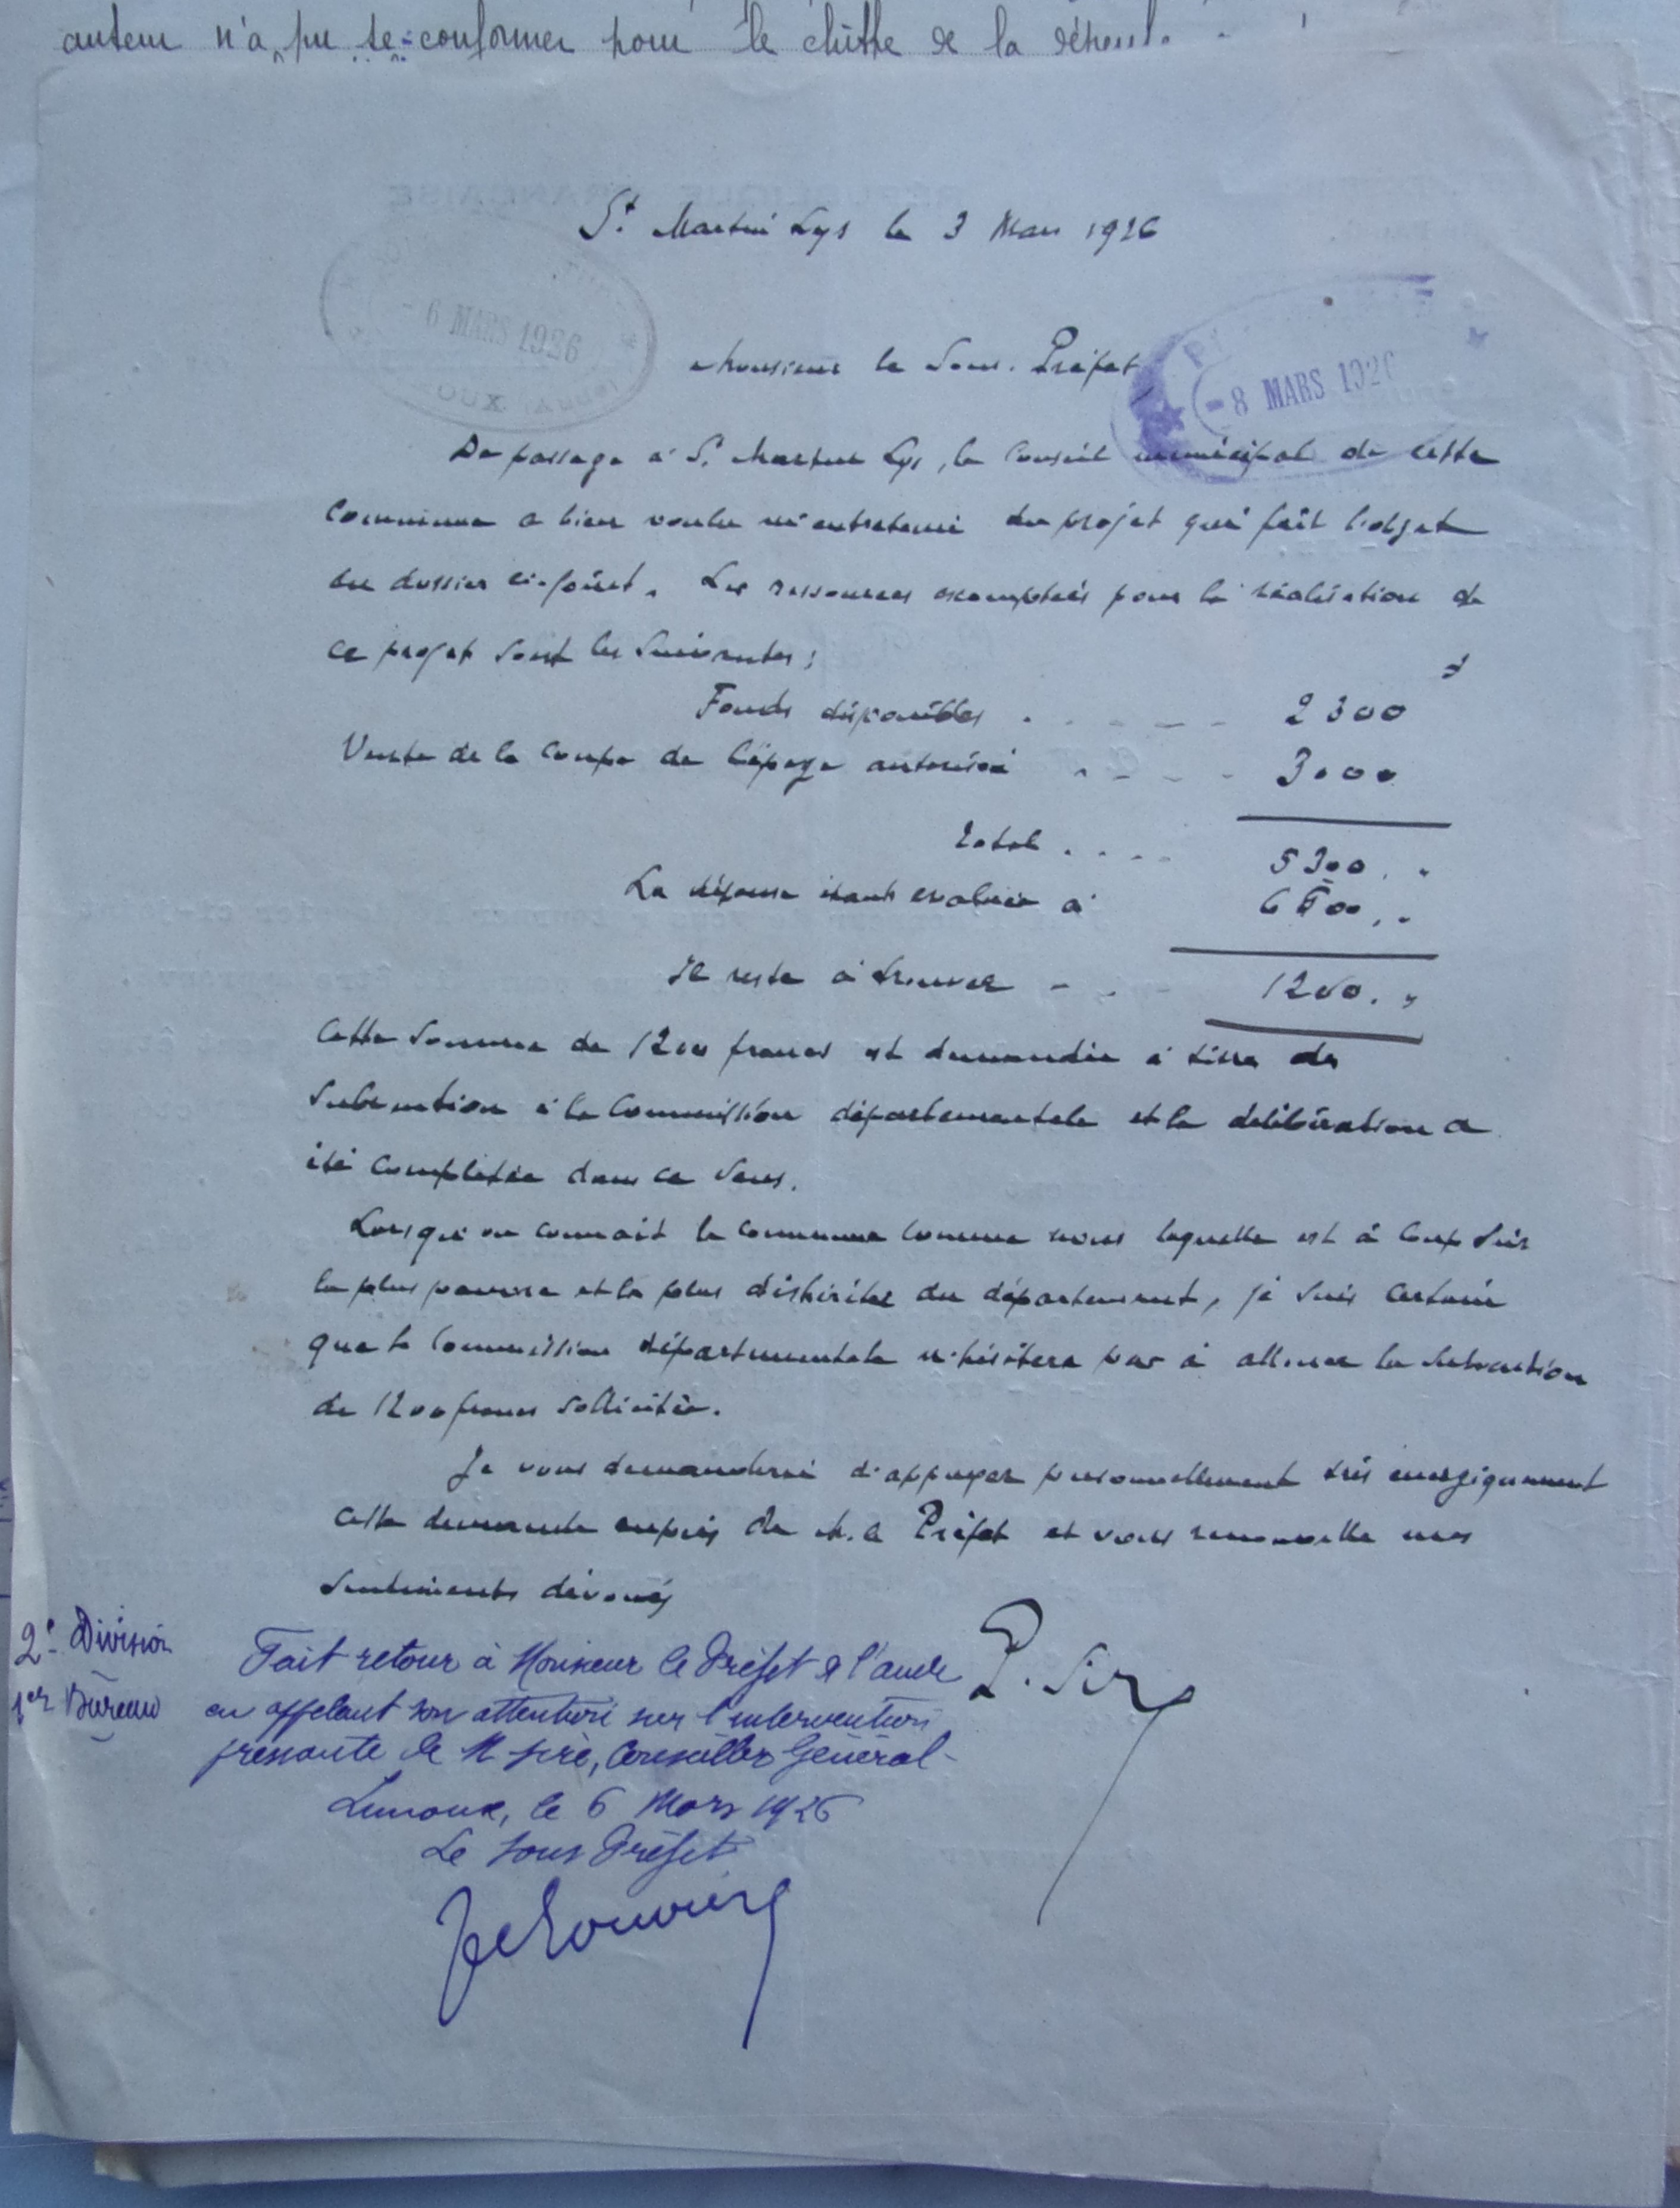 auteur n'a pu se conformer pour le chiffre de la
St Martin Lys le 3 Mars 1926
- 6 MARS 1926
Monsieur le Sous-Préfet
- 8 MARS 1926
De passage à St Martin Lys, le Conseil municipal de cette
Commune a bien voulu m'entretenir du projet qui fait l'objet
du dossier ci-joint. Les ressources escomptées pour la réalisation de
ce projet sont les suivantes :
Fonds disponibles . - - - - 2300 f
Vente de la coupe de l'épaye autorisée - - - - 3000
Total . . . . 5300 . "
La dépense étant évaluée à 6500 , "
Il reste à trouver - - - 1200 . "
Cette somme de 1200 francs est demandée à titre de
subvention à la Commission départementale et la délibération a
été complétée dans ce sens.
Lorsqu'on connait la commune comme nous laquelle est à coup sûr
la plus pauvre et la plus déshéritée du département, je suis certain
que la Commission départementale n'hésitera pas à allouer la subvention
de 1200 francs sollicitée.
Je vous demanderai d'appuyer personnellement très énergiquement
cette demande auprès de M. le Préfet et vous renouvelle mes
sentiments dévoués
P. Sire
2e Division
1er Bureau
Fait retour à Monsieur le Préfet de l'Aude
en appelant son attention sur l'intervention
pressante de M Sire, Conseiller Général -
Limoux, le 6 Mars 1926
Le Sous Préfet